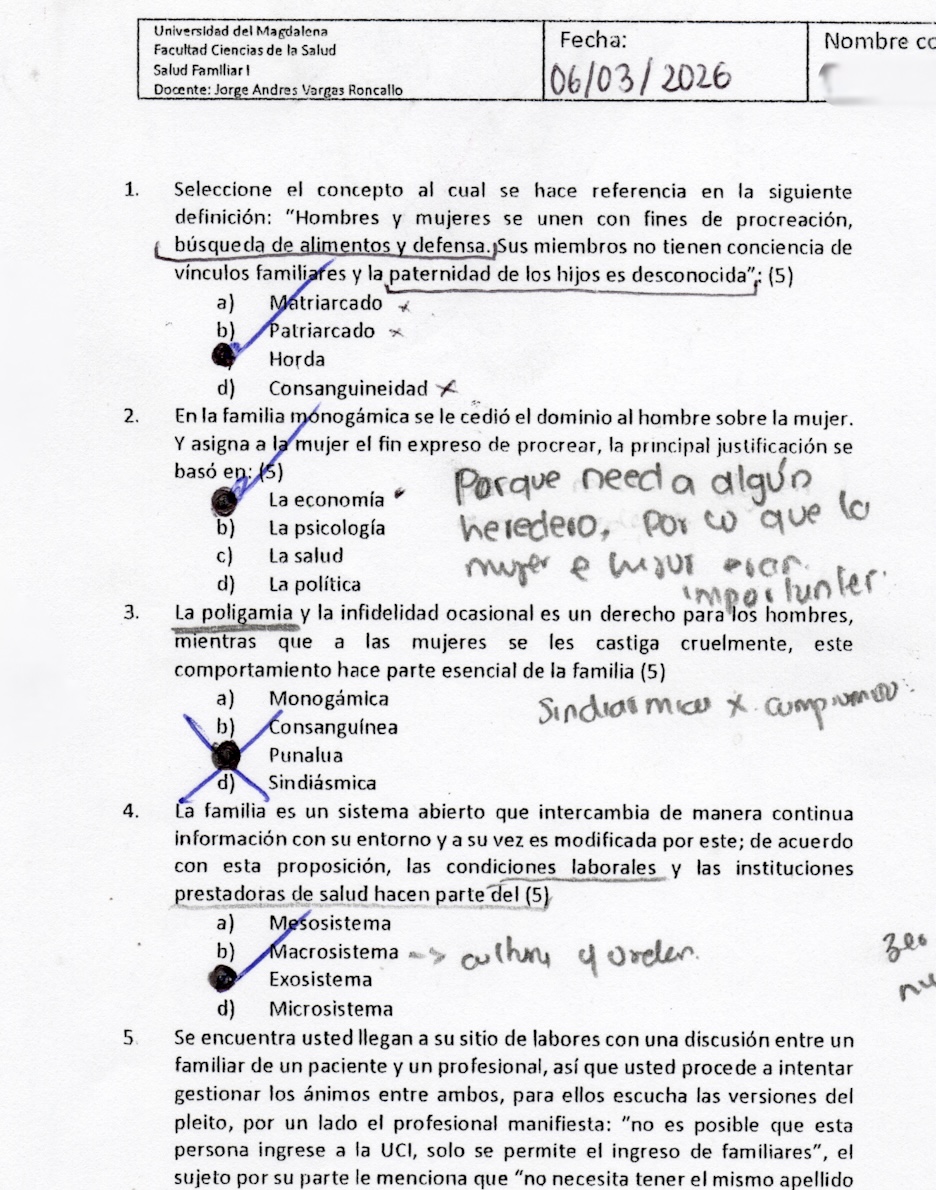 Universidad del Magdalena
Facultad Ciencias de la Salud
Salud Familiar I
Docente: Jorge Andres Vargas Roncallo
Fecha:
06/03/2026
Nombre co
1. Seleccione el concepto al cual se hace referencia en la siguiente
definición: "Hombres y mujeres se unen con fines de procreación,
búsqueda de alimentos y defensa. Sus miembros no tienen conciencia de
vínculos familiares y la paternidad de los hijos es desconocida": (5)
a) Matriarcado x
b) Patriarcado x
Horda
d) Consanguineidad x
2. En la familia monogámica se le cedió el dominio al hombre sobre la mujer.
Y asigna a la mujer el fin expreso de procrear, la principal justificación se
basó en: (5)
La economía
b) La psicología
c) La salud
d) La política
Porque need a algún
heredero, por co que la
mujer e
3. La poligamia y la infidelidad ocasional es un derecho para los hombres,
mientras que a las mujeres se les castiga cruelmente, este
comportamiento hace parte esencial de la familia (5)
a) Monogámica
b) Consanguínea
Punalua
d) Sindiásmica
x
4. La familia es un sistema abierto que intercambia de manera continua
información con su entorno y a su vez es modificada por este; de acuerdo
con esta proposición, las condiciones laborales y las instituciones
prestadoras de salud hacen parte del (5)
a) Mesosistema
b) Macrosistema -> cultura y orden.
Exosistema
d) Microsistema
5. Se encuentra usted llegan a su sitio de labores con una discusión entre un
familiar de un paciente y un profesional, así que usted procede a intentar
gestionar los ánimos entre ambos, para ellos escucha las versiones del
pleito, por un lado el profesional manifiesta: "no es posible que esta
persona ingrese a la UCI, solo se permite el ingreso de familiares", el
sujeto por su parte le menciona que "no necesita tener el mismo apellido